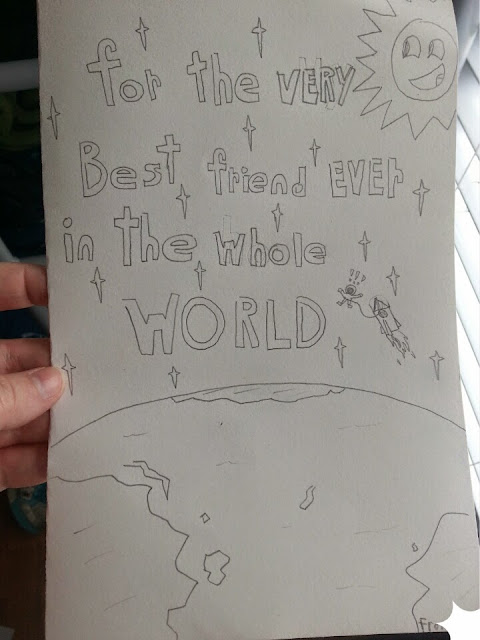 for the VERY
Best friend EVER
in the whole
WORLD
!!!